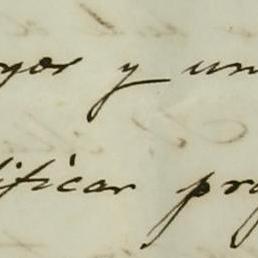 yor y un
ificar pro